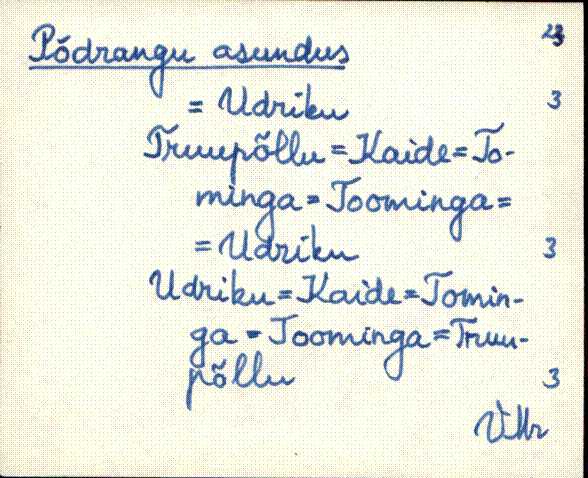 Põdrangu asundus 23
= Udriku 3
Truupõllu = Kaide = To-
minga = Toominga =
= Udriku 3
Udriku = Kaide = Tomin-
ga = Toominga = Truu-
põllu 3
VMr